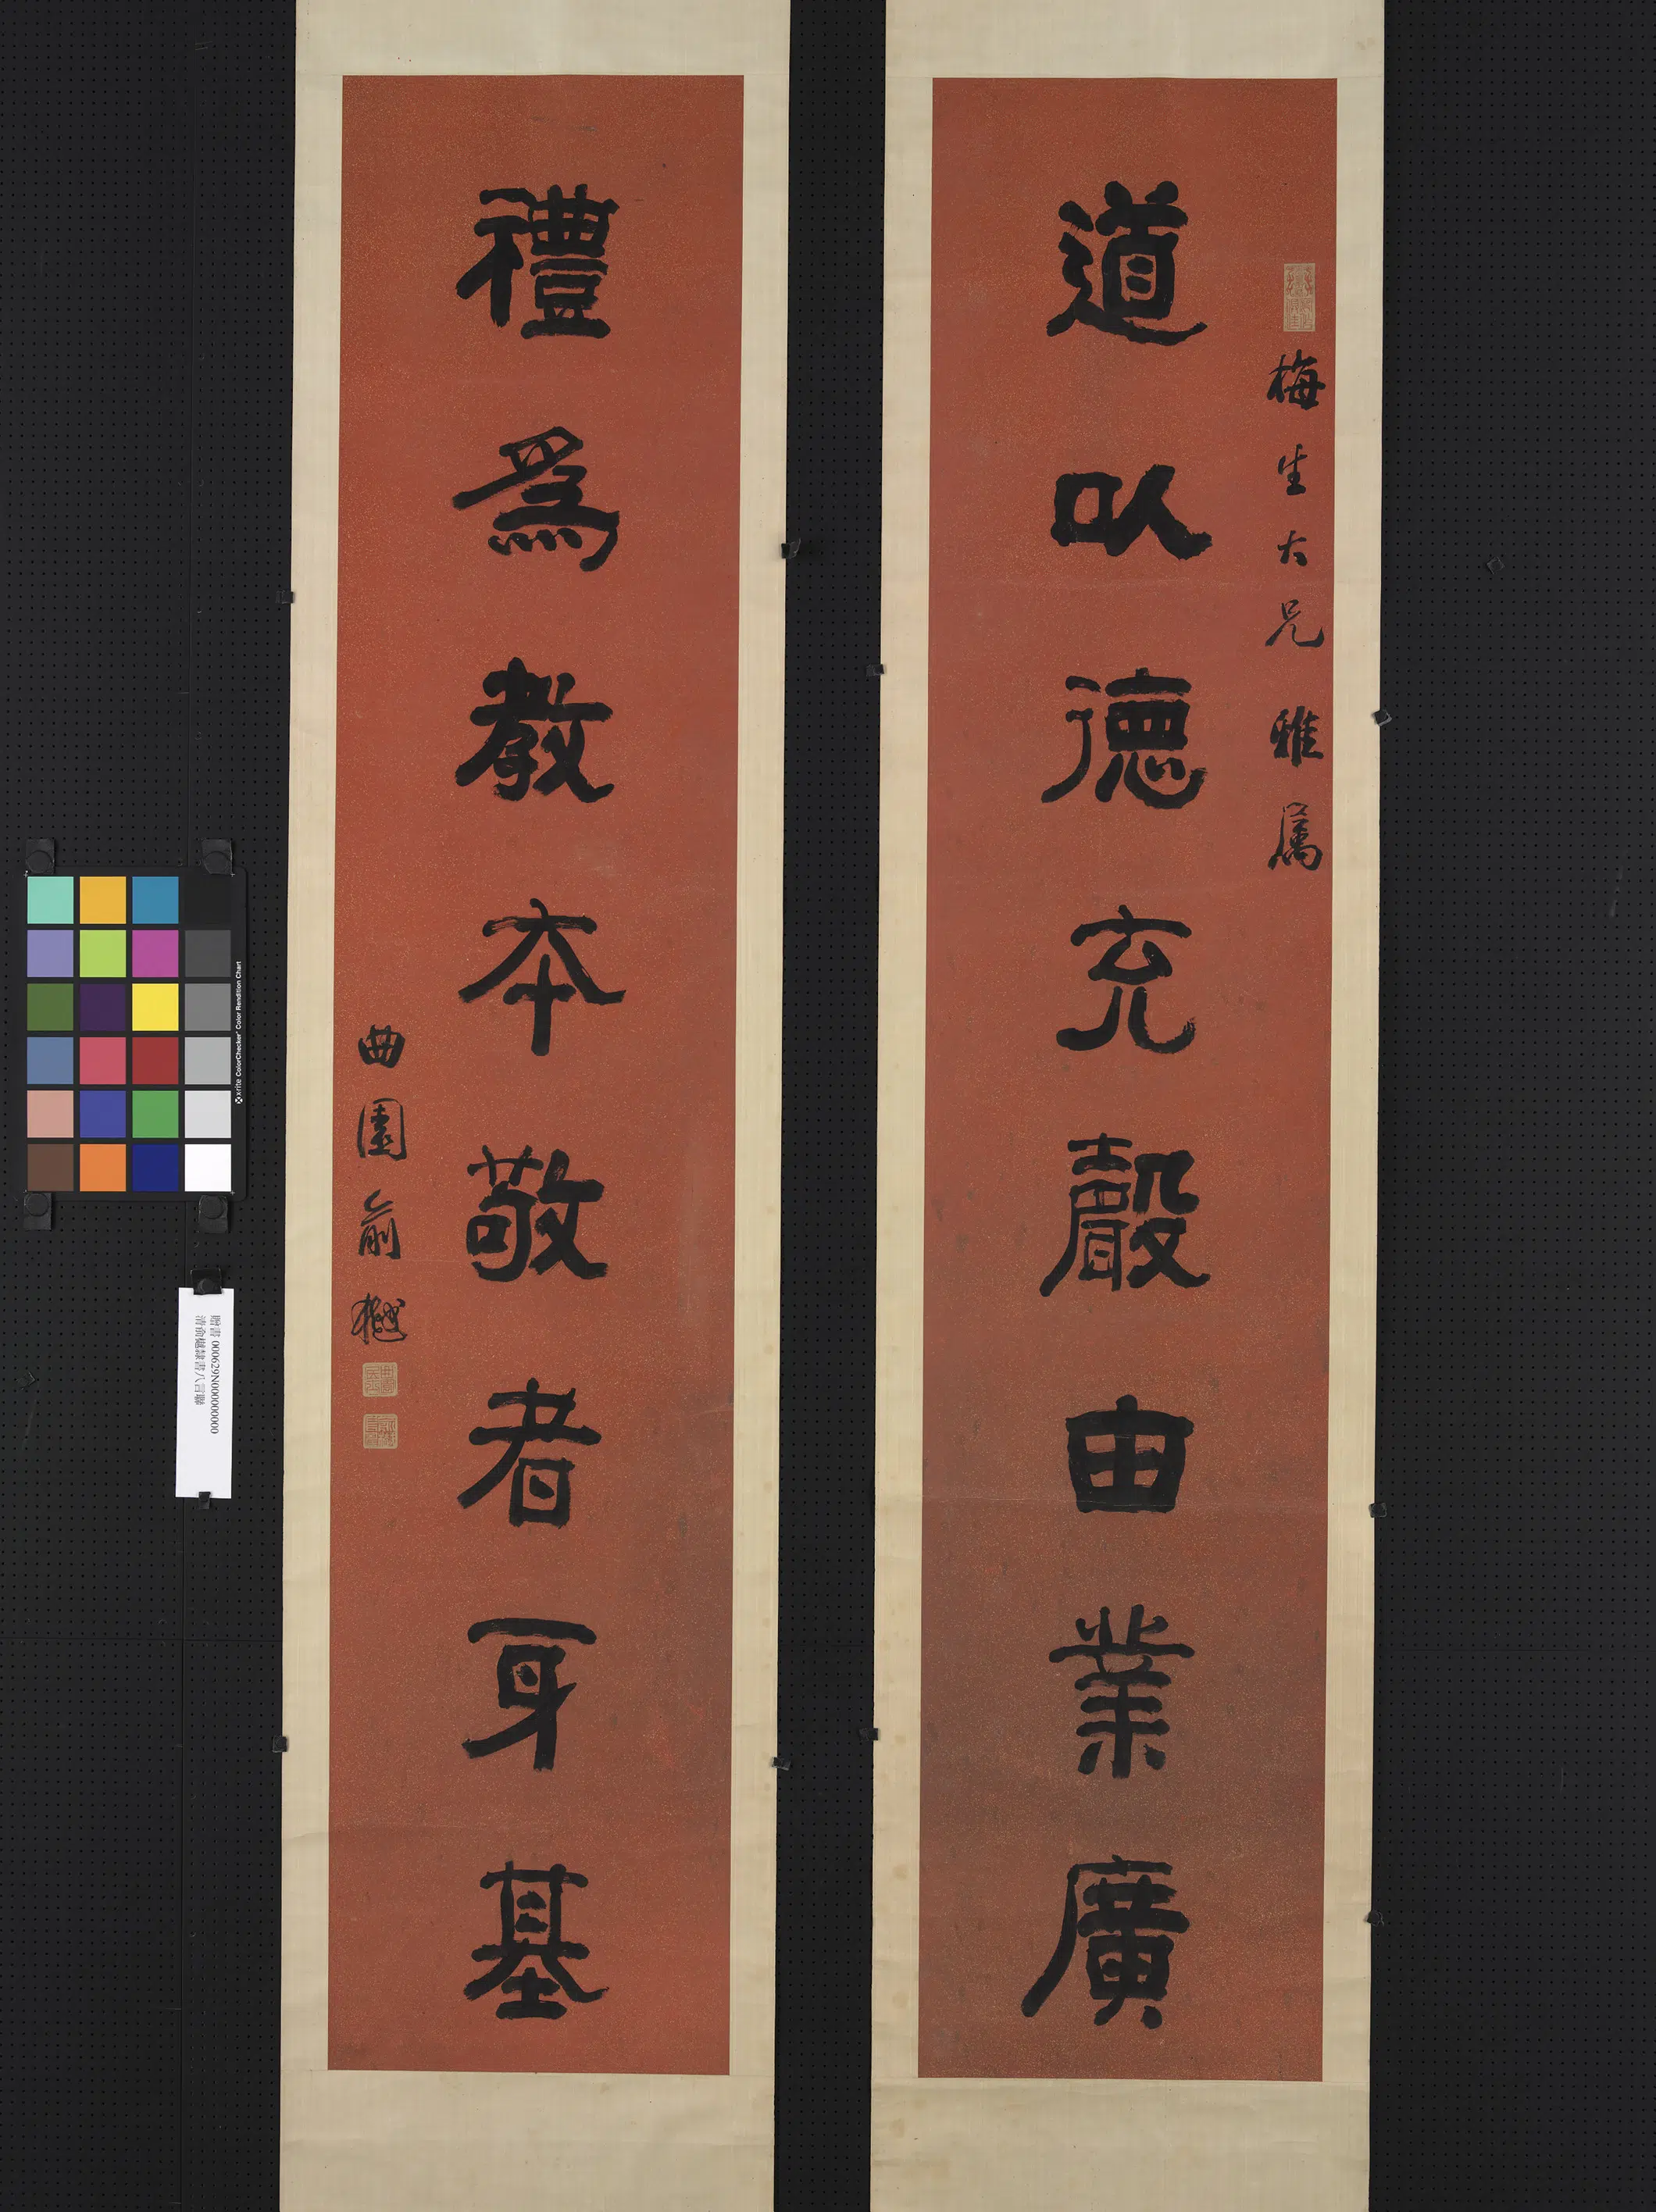 梅生大兄雅属
道以德充聲由業廣
禮爲教本敬者身基
曲園俞樾
贈書 000629N000000000
清俞樾隸書八言聯
x-rite ColorChecker® Color Rendition Chart